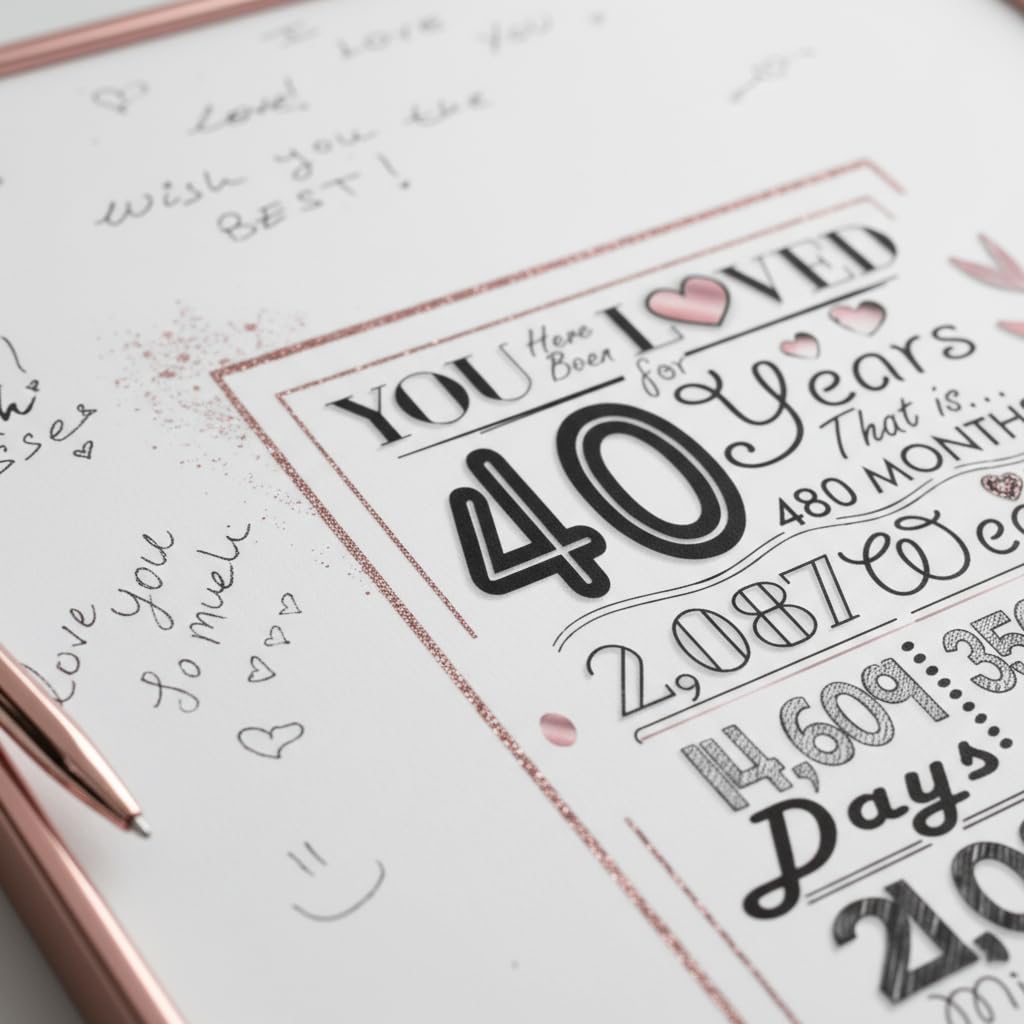 I Love You
Love!
Wish you the
BEST!
sses
Love You
So Much
YOU Here Been LOVED
for
40 Years
That is...
480 MONTHS
2,087 Wee
14,609 : 350
Days
21,0
Mi